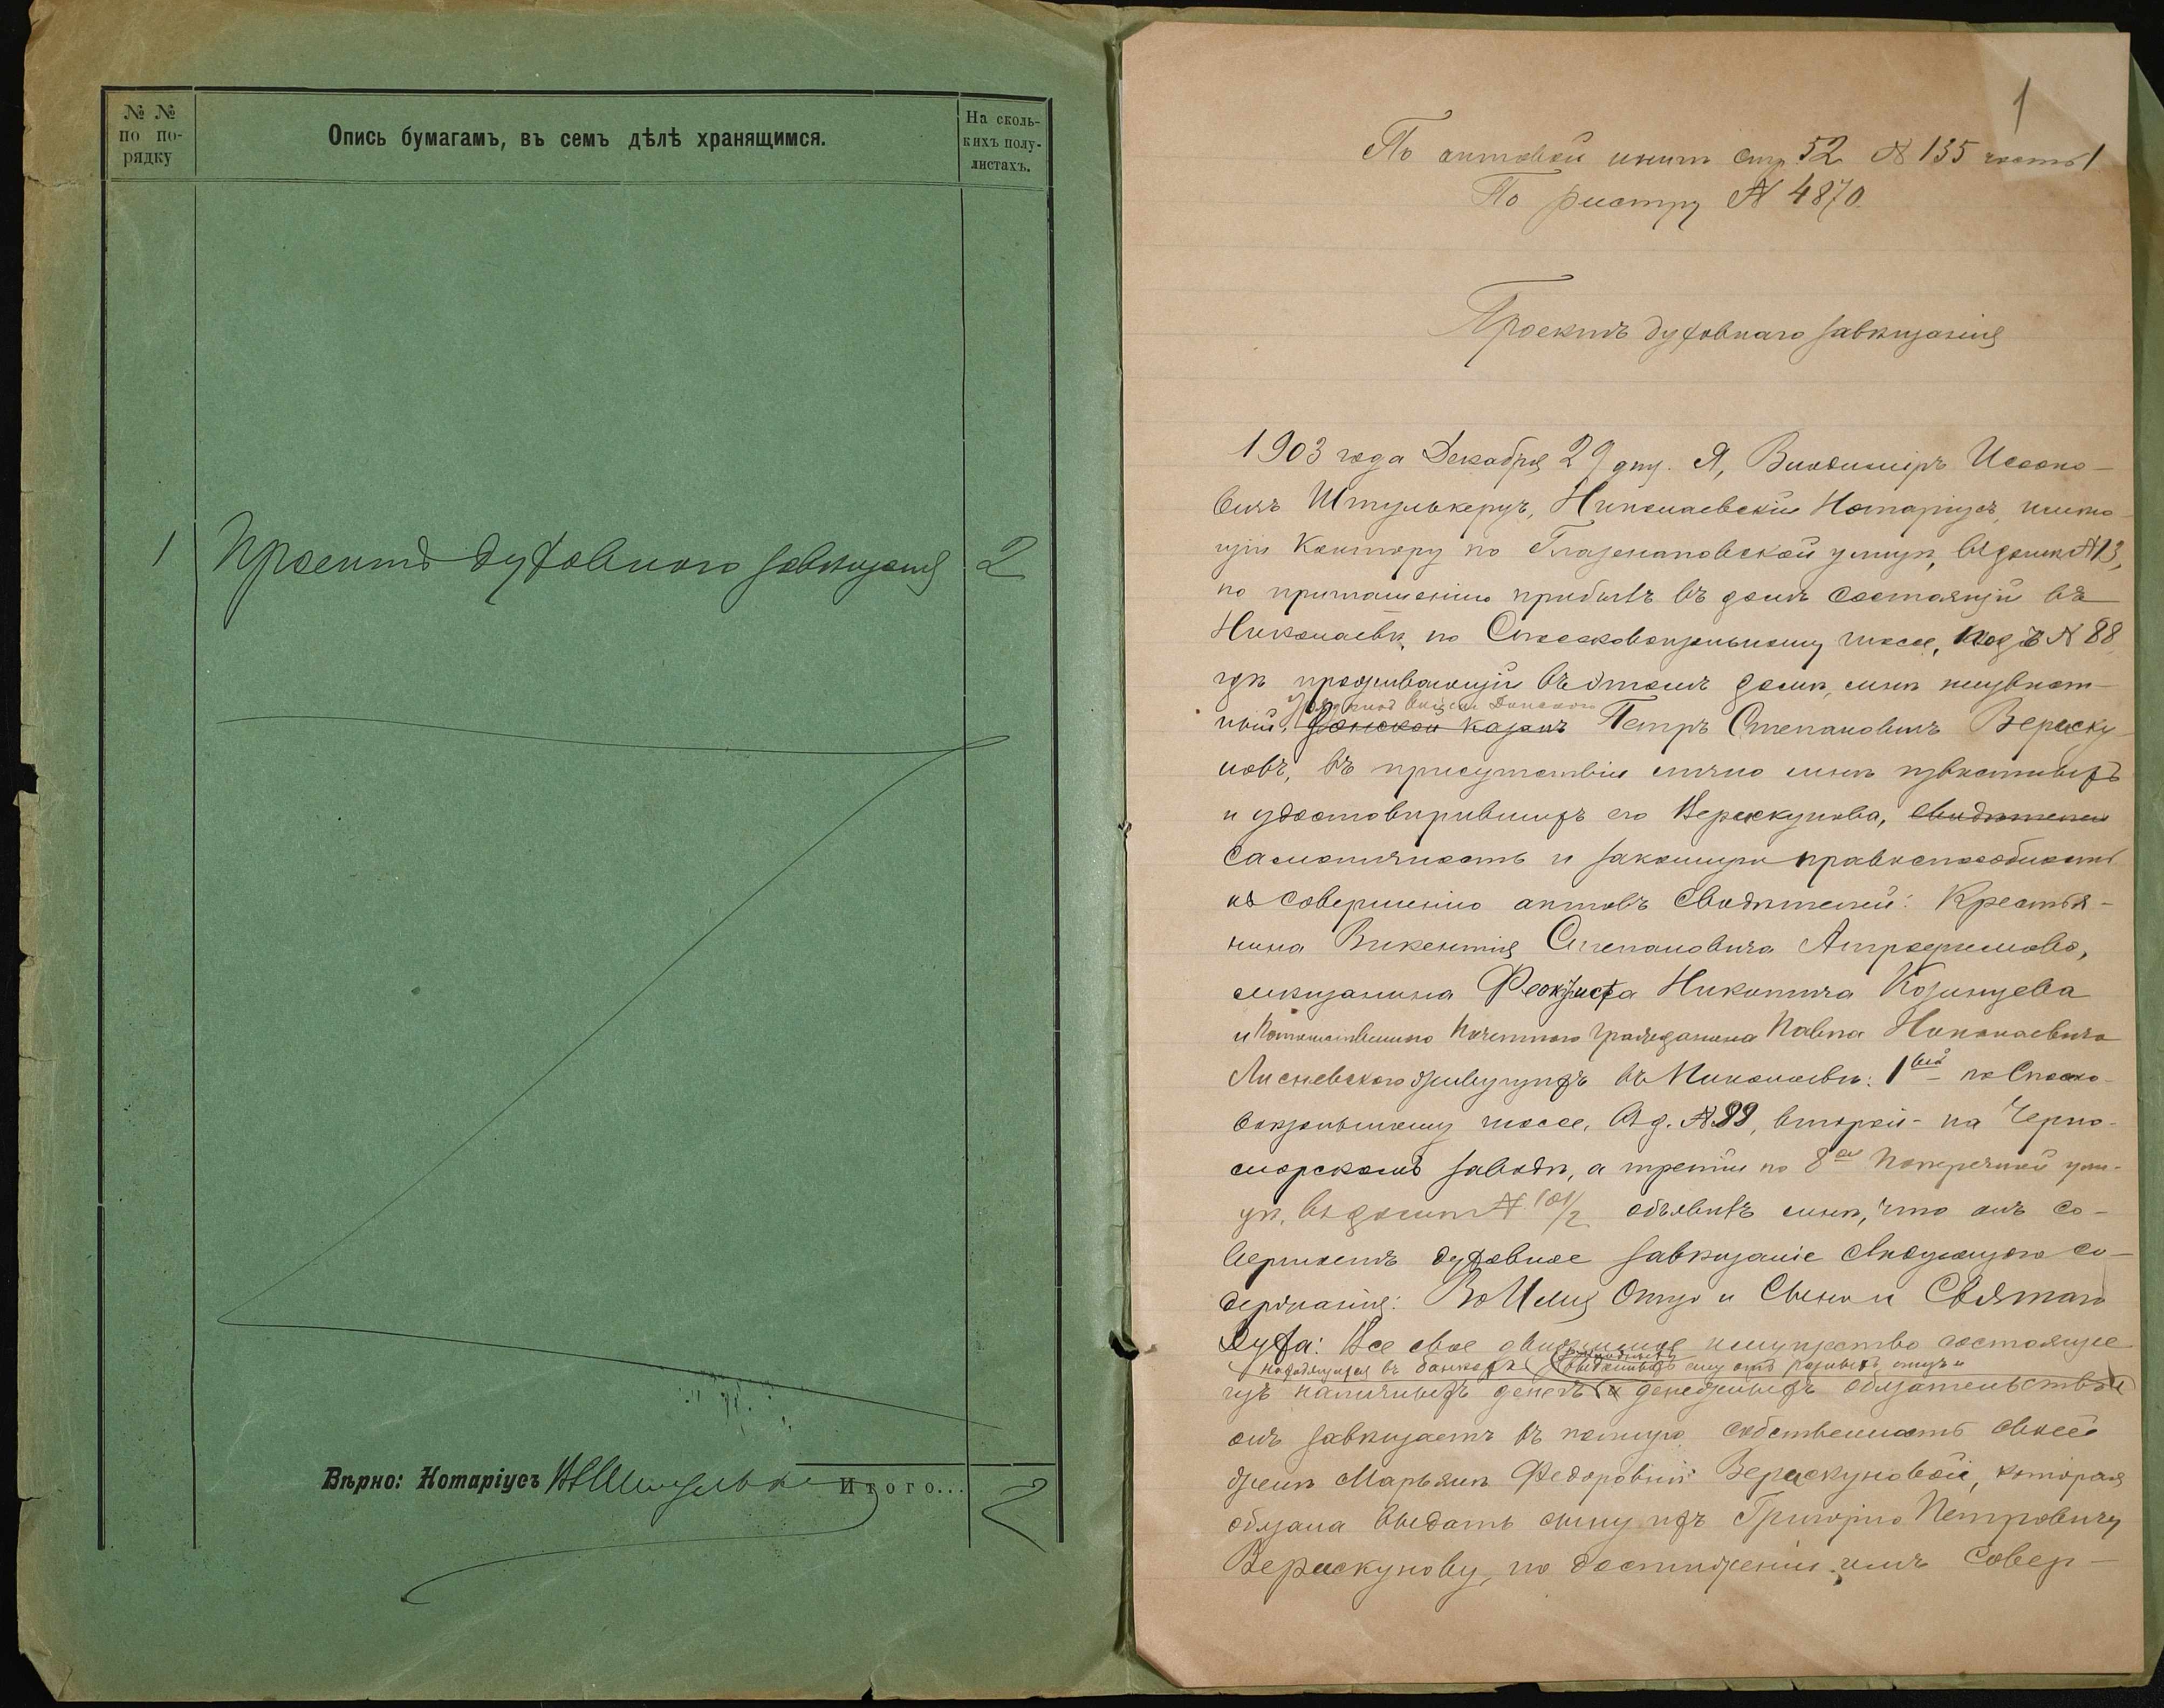 № №
по по-
рядку
Опись бумагамъ, въ семъ дѣлѣ хранящимся.
На сколь-
кихъ полу-
листахъ.
1 Проектъ духовнаго завѣщанія 2
Вѣрно: Нотаріусъ
Итого... 2
1
По актовой книгѣ стр. 52 № 135 часть 1
По реестру № 4870.
Проектъ духовнаго завѣщанія
1903 года Декабря 29 дня. Я, Владиміръ Исаако-
вичъ Штулькерцъ, Николаевскій Нотаріусъ, имѣю-
щій Контору по Глазенаповской улицѣ, въ домѣ № 13,
по приглашенію прибылъ въ домъ состоящій въ
Николаевѣ, по Спасковокзальному шоссе, подъ № 88
гдѣ проживающій въ этомъ домѣ, мнѣ неизвѣст-
Войска Донского
ный, Донской казакъ Петръ Степановичъ Вераску-
новъ, въ присутствіи лично мнѣ извѣстныхъ
и удостовѣрившихъ его Вераскунова, свидѣтелей
самоличность и законную правоспособность
къ совершенію актовъ свидѣтелей: Крестья-
нина Викентія Степановича
мѣщанина Феоктиста Никитича Козинцева
и Потомственнаго Почетнаго гражданина Павла Николаевича
Лисневскаго живущихъ въ Николаевѣ: 1вый по Спаско-
вокзальному шоссе, въ д. № 88, второй - на Черно-
морскомъ заводѣ, а третій по 8ой Поперечной ули-
цѣ, въ домѣ № 101/2 объявилъ мнѣ, что онъ со-
вершаетъ духовное завѣщаніе слѣдующаго со-
держанія: Во Имя Отца и Сына и Святаго
Духа: Все свое движимое имущество состоящее
находящихся въ банкахъ ему отъ разныхъ лицъ и
изъ наличныхъ денегъ и денежныхъ обязательствъ
онъ завѣщаетъ въ полную собственность своей
женѣ Марьянѣ Федоровнѣ Вераскуновой, которая
обязана выдать сыну ихъ Григорію Петровичу
Вераскунову, по достиженіи имъ совер-